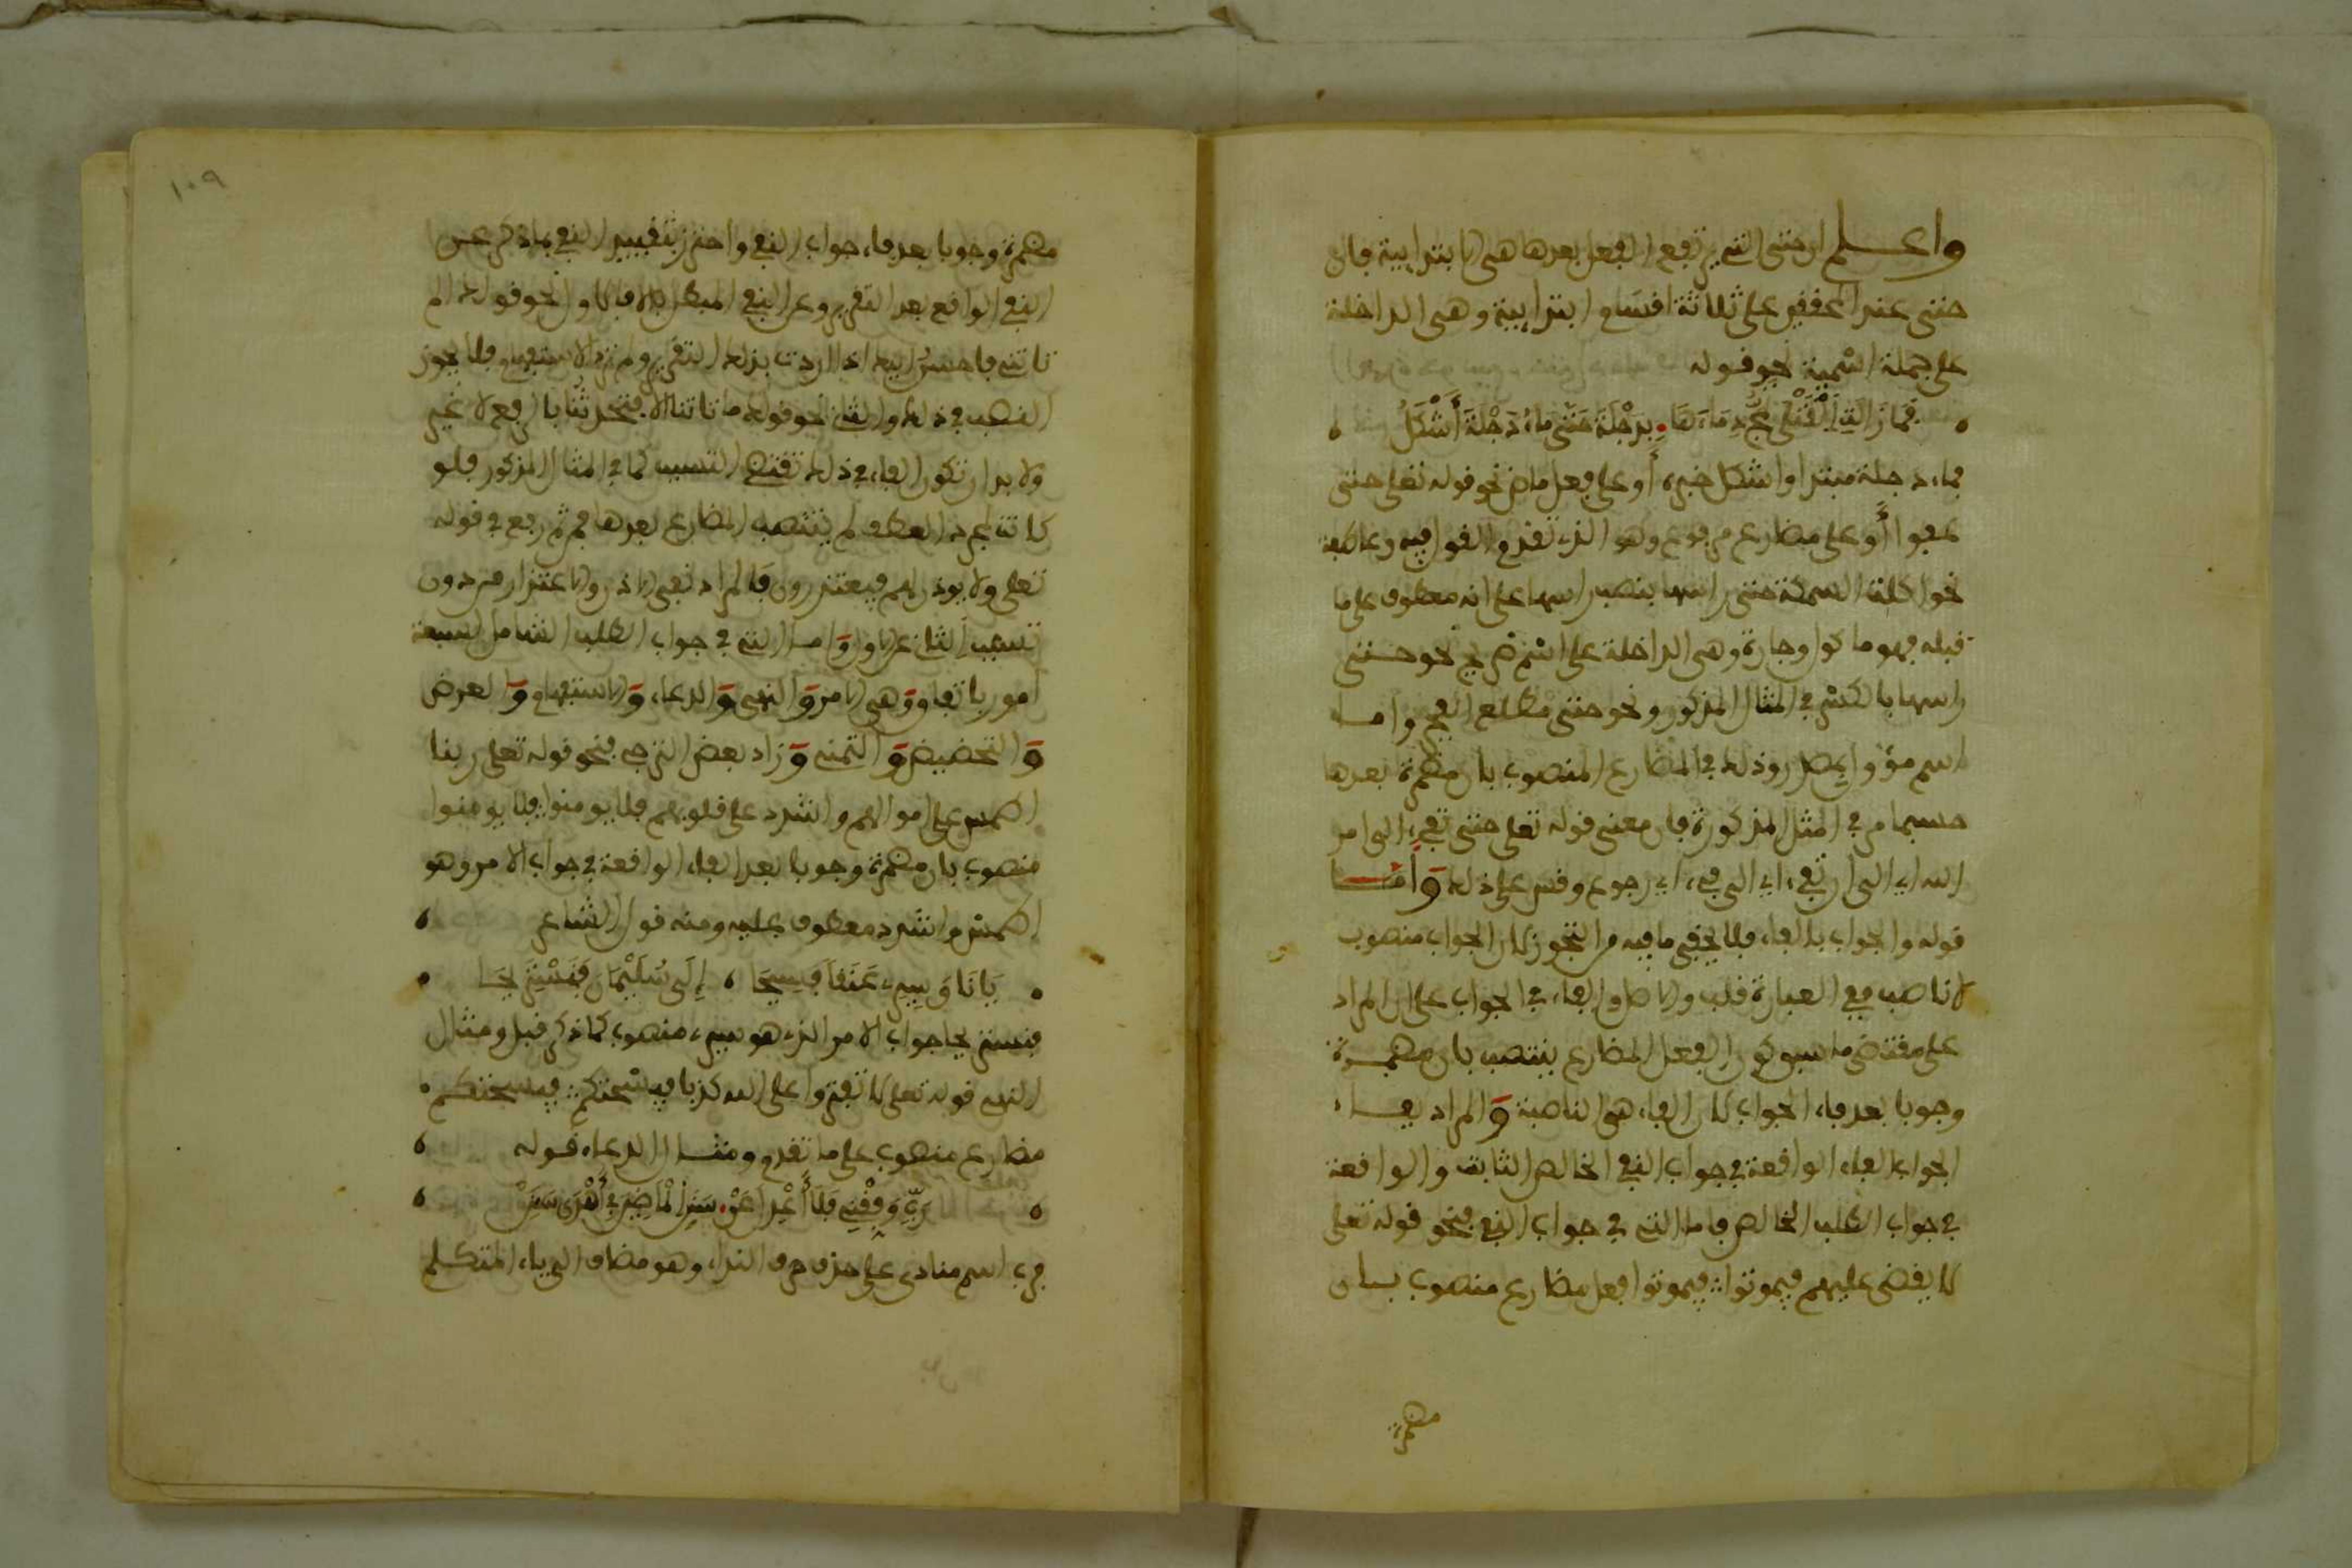 واعلم ان حتى التي يرتفع الفعل بعدها هي الابتدايية فان
حتى عند المحققين على ثلاثة اقسام ابتدايية وهي الداخلة
على جملة اسمية نحو قوله
فَمَا زَالَتِ الْقَتْلَى تَمُجُّ دِمَاءَهَا بِدَجْلَةَ حَتَّى مَاءُ دَجْلَةَ أَشْكَلُ
فماء دجلة مبتدا واشكل خبره أو على فعل ماض نحو قوله تعلى حتى
عفوا أو على مضارع مرفوع وهو الذي تقدم القول فيه وعاطفة
نحو اكلت السمكة حتى راسها بنصب راسها على انه معطوف على ما
قبله فهو ماكول وجارة وهي الداخلة على اسم صريح نحو حتى
راسها بالكسر في المثال المذكور ونحو حتى مطلع الفجر واما
اسم مؤول بمصدر وذلك في المضارع المنصوب بان مضمرة بعدها
حسبما مر في المثل المذكورة فان معنى قوله تعلى حتى تفيء الى امر
الله اي الى ان تفيء اي الى فيء اي رجوع وقس على ذلك وَأما
قوله والجواب بالفاء فلا يخفى ما فيه من التجوز لان الجواب منصوب
لا ناصب ففي العبارة قلب والاصل والفاء في الجواب على ان المراد
على مقتضى ما سبق كون الفعل المضارع ينتصب بان مضمرة
وجوبا بعد فاء الجواب لان الفاء هي الناصبة وَالمراد بفاء
الجواب الفاء الواقعة في جواب النفي الخالص الثابت والواقعة
في جواب الطلب الخالص فاما التي في جواب النفي فنحو قوله تعلى
لا يقضى عليهم فيموتوا فيموتوا فعل مضارع منصوب بان
مضمرة
١٠٩
مضمرة وجوبا بعد فاء جواب النفي واحترز بتقييد النفي بما ذكر عن
النفي الواقع بعد التقرير وعن النفي المبطل بالا فالاول نحو قولك الم
تاتني فاحسن اليك اذا اردت بذلك التقرير ولم ترد الاستفهام فلا يجوز
النصب في ذلك والثاني نحو قولك ما تاتنا الا فتحدثنا بالرفع لا غير
ولا بد ان تكون الفاء في ذلك تقتضي التسبب كما في المثال المذكور فلو
كانت لمجرد العطف لم ينتصب المضارع بعدها فمن ثم رفع في قوله
تعلى ولا يوذن لهم فيعتذرون فَالمراد نفي الاذن والاعتذار من دون
تسبب الثاني عن الاول وَاما التي في جواب الطلب الشامل لسبعة
امور باتفاق وَهي الامر وَالنهي وَالدعاء وَالاستفهام وَالعرض
وَالتحضيض وَالتمني وَزاد بعض الترجي فنحو قوله تعلى ربنا
اطمس على اموالهم واشدد على قلوبهم فلا يومنوا فلا يومنوا
منصوب بان مضمرة وجوبا بعد الفاء الواقعة في جواب الامر وهو
اطمس واشدد معطوف عليه ومنه قول الشاعر
يَا نَاقَ سِيرِي عَنَقًا فَسِيحَا إِلَى سُلَيْمَانَ فَنَسْتَرِيحَا
فنستريحا جواب الامر الذي هو سيري منصوب كما ذكر قبل ومثال
النهي قوله تعلى لا تفتروا على الله كذبا فيسْحتكم فيسحتكم
مضارع منصوب على ما تقدم ومثال الدعاء قوله
رَبِّ وَفِّقْنِي فَلَا أَعْدِلَ عَنْ سَنَنِ الْمَاضِينَ فِي أَهْدَى سَنَنْ
فرب اسم منادى على حذف حرف النداء وهو مضاف الى ياء المتكلم